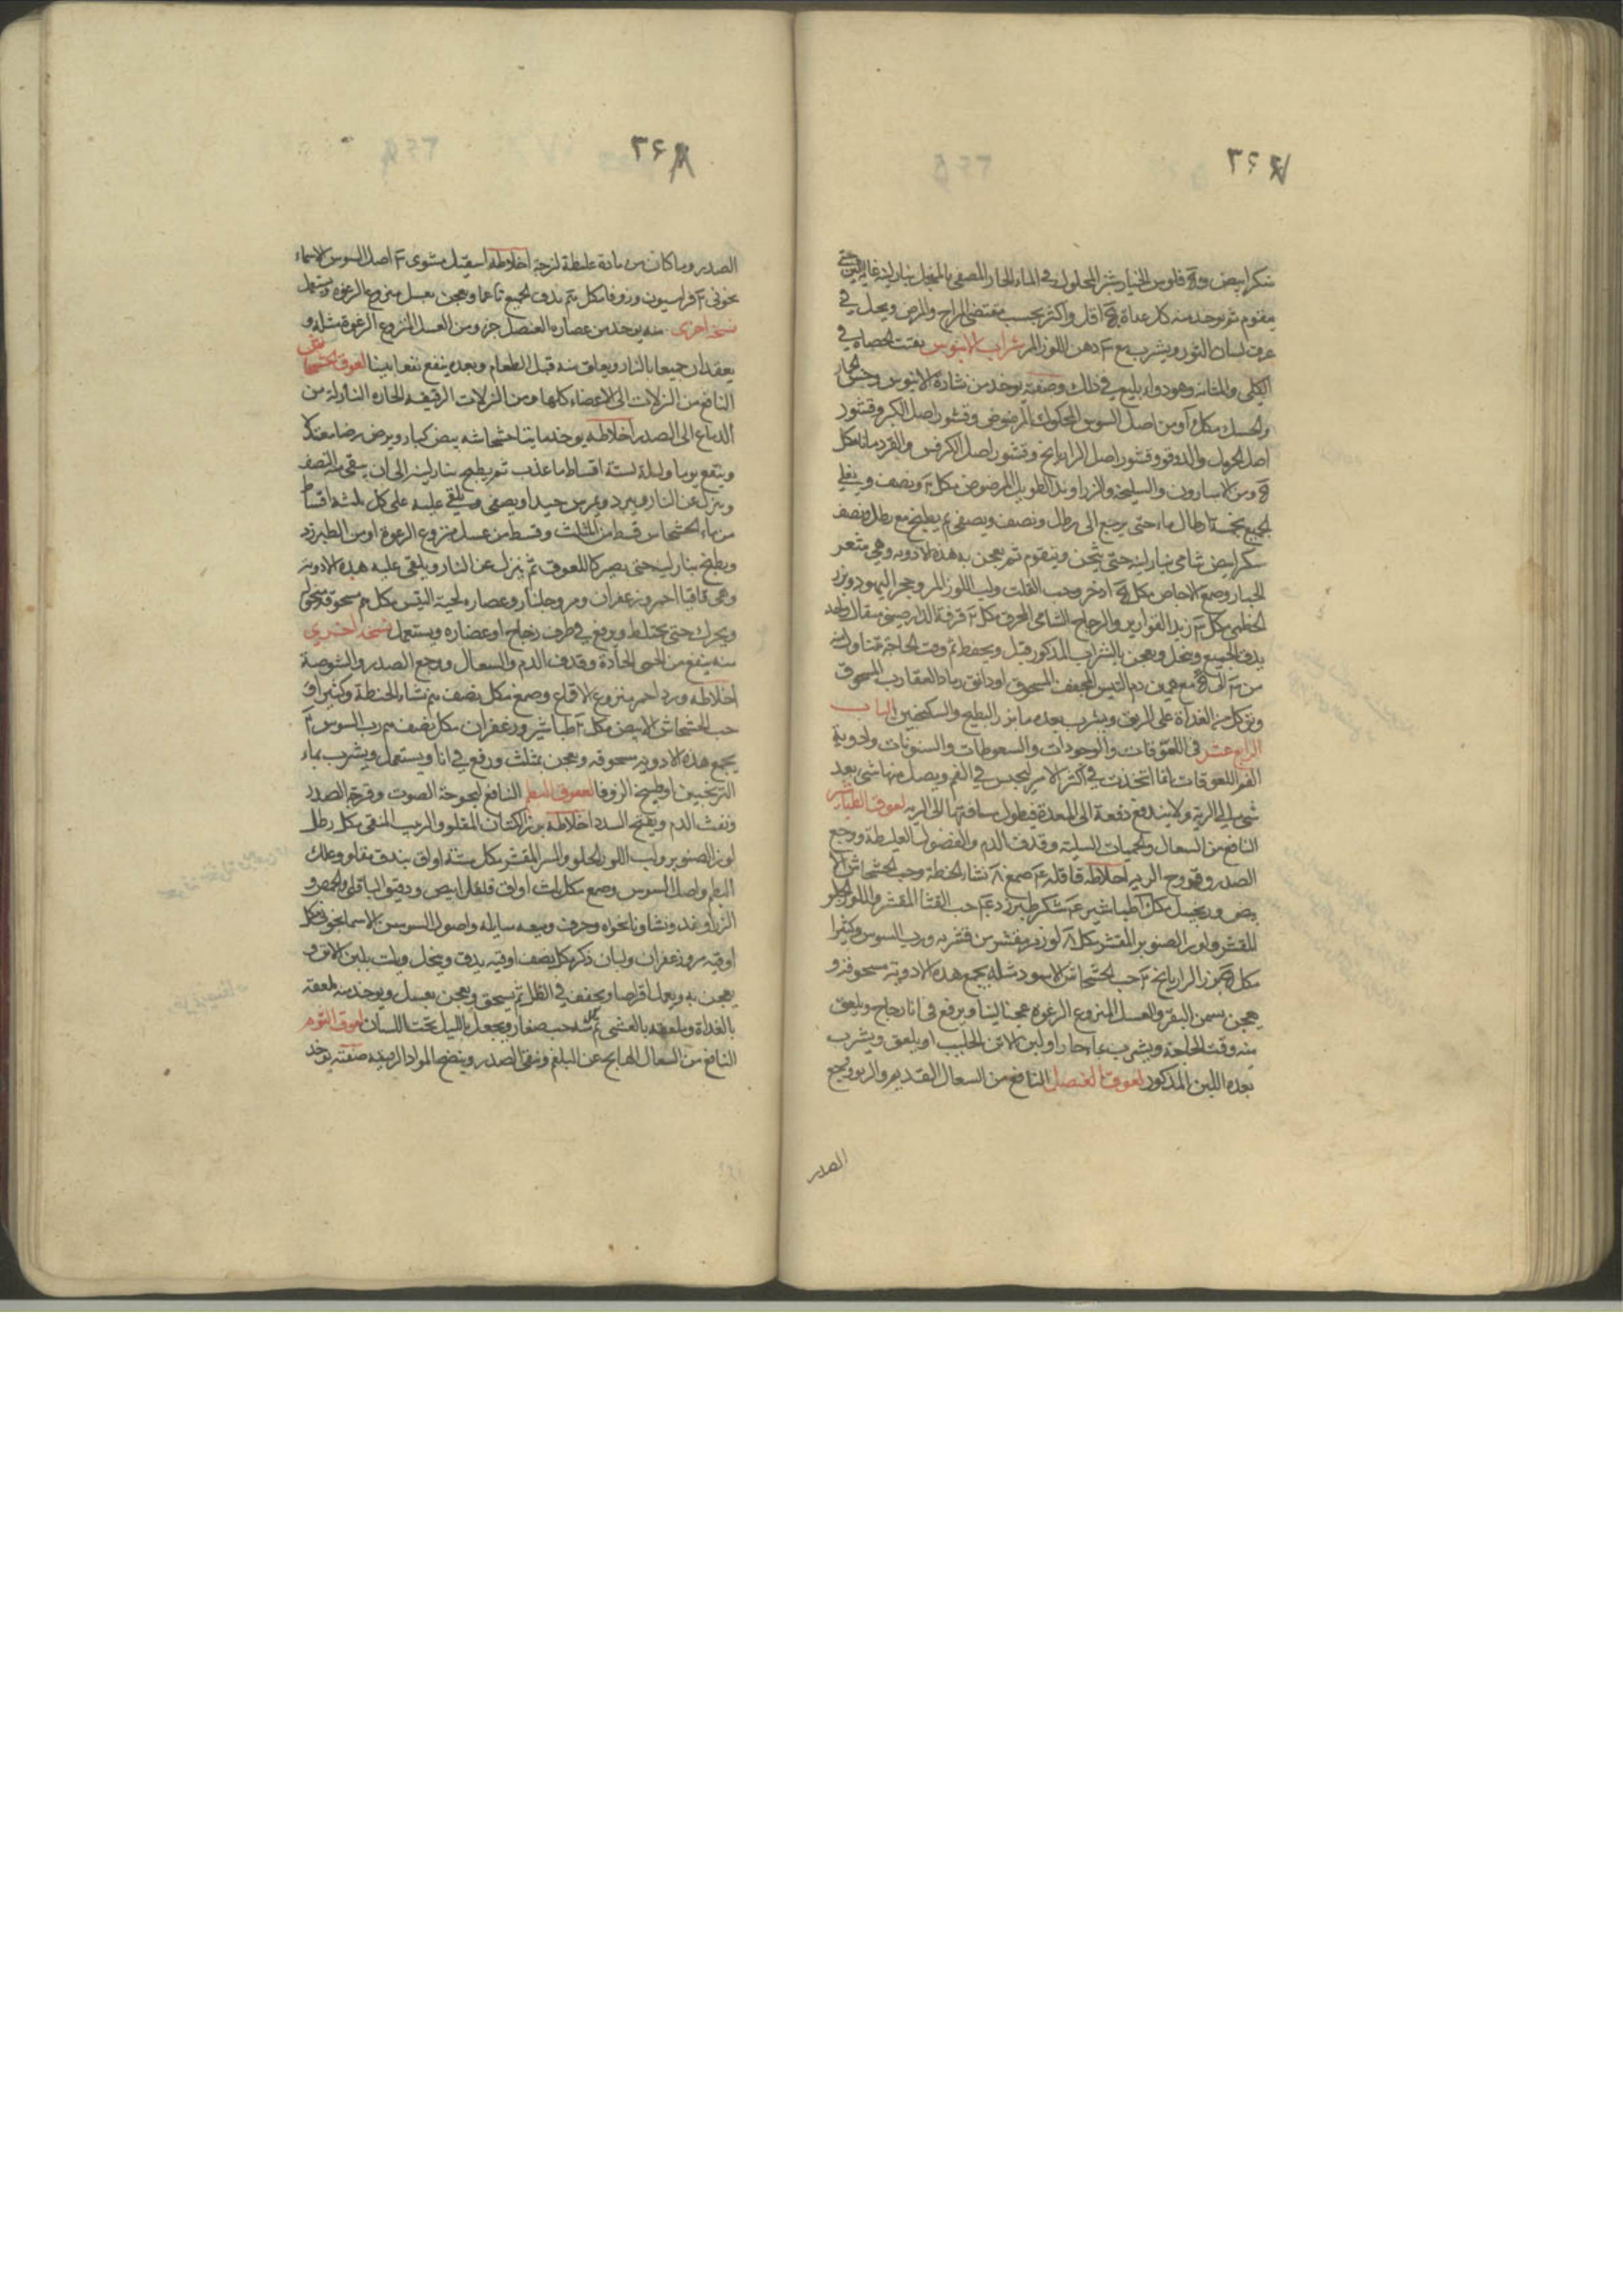 ٢٦٧
سكر ابيض و فلوس الخيار شنبر المحلول في الماء الحار المصفى بالمنخل بنار لينة غاية اللين حتى
يقوم ثم يوخذ منه كل غداة اقل واكثر بحسب مقتضى المزاج والمرض ويحل في
عرق لسان الثور ويشرب مع دهن اللوز المر شراب الابنوس يفتت الحصاة في
الكلى والمثانه وهو دواء بليغ في ذلك وصفته يوخذ من نشارة الابنوس
والحسك مكل ومن اصل السوس المحكوك المرضوض وقشور اصل الكبر وقشور
اصل الحرمل والدوقو وقشور اصل الرازيانج وقشور اصل الكرفس والقردمانا مكل
ومن الاسارون والسليخه والزراوند الطويل المرضوض مكل ونصف ويغلى
الجميع بخمسة ارطال ماء حتى يرجع الى رطل ونصف ويصفى ثم يطبخ مع رطل ونصف
سكر ابيض شامي بنار لينة حتى يثخن ويتقوم ثم يعجن به هذه الادويه وهي
الخيار وصمغ الاجاص مكل اذخر وحب القلت ولب اللوز المر وحجر اليهود وبزر
الخطمي مكل زبد القوارير والزجاج الشامي المحرق مكل قرفة الدارصيني مثقال واحد
يدق الجميع وينخل ويعجن بالشراب المذكور قبل ويحفظ ثم وقت الحاجة يتناول منه
من الى مع من دم التيس المجفف المسحوق او دانق رماد العقارب المسحوق
على الريق ويشرب بعده ماء بزر البطيخ والسكنجبين الباب
الرابع عشر في اللعوقات والوجورات والسعوطات والسنونات وادوية
الفم اللعوقات انما اتخذت في اكثر الامر ليحبس في الفم ويصل منها شي بعد
شي الى الرية ولا يندفع دفعة الى المعدة فيطول مسافتها الى الريه لعوق الطباشير
النافع من السعال والحميات السلية وقذف الدم والفضول الغليظة ووجع
الصدر وقروح الريه اخلاطه قاقله صمغ نشاء الحنطة وحب الخشخاش الا
بيض وزنجبيل مكل طباشير سكر طبرزد حب القثا المقشر واللوز الحلو
المقشر ولوز الصنوبر المقشر مكل لوز مر مقشر من قشريه ورب السوس وكثيرا
مكل بزر الرازيانج حب الخشخاش الاسود مثله يجمع هذه الادوية مسحوقة و
يعجن بسمن البقر والعسل المنزوع الرغوة عجنا لينا ويرفع في اناء زجاج ويلعق
منه وقت الحاجة ويشرب بماء حار او لبن الاتن الحليب او يلعق ويشرب
بعده اللبن المذكور لعوق العنصل النافع من السعال القديم والربو ووجع
الصدر
٢٦٨
الصدر وما كان من مادة غليظة لزجة اخلاطه اسقيل مشوى اصل السوس الاسما
نجوني فراسيون وزوفا مكل يدق الجميع ناعما ويعجن بعسل منزوع الرغوه ويستعمل
نسخه اخرى منه يوخذ من عصاره العنصل جزء ومن العسل المنزوع الرغوة مثله و
يعقدان جميعا بالنار ويعلق منه قبل الطعام وبعده ينفع نفعا بينا لعوق الخشخاش
النافع من النزلات الى الاعضاء كلها ومن النزلات الرقيقه الحاره النازلة من
الدماغ الى الصدر اخلاطه يوخذ مايتا خشخاشه بيض كبار ويرض رضا معتدلا
وينقع يوما وليلة لستة اقساط ماء عذب ثم يطبخ بنار لينة الى ان يبقى منه النصف
وينزل عن النار ويبرد ويمرس جيدا ويصفى ويلقى عليه على كل ثلثه اقساط
من ماء الخشخاش قسط من المثلث وقسط من عسل منزوع الرغوة او من الطبرزد
ويطبخ بنار لينة حتى يصير كاللعوق ثم ينزل عن النار ويلقى عليه هذه الادوية
وهي قاقيا احمر وزعفران ومر وجلنار وعصاره لحية التيس مكل مسحوقة
ويحرك حتى يختلط ويرفع في ظرف زجاج او غضاره ويستعمل نسخة اخرى
منه ينفع من الحمى الحادة وقذف الدم والسعال ووجع الصدر والشوصة
اخلاطه ورد احمر منزوع الاقماع وصمغ مكل نصف نشاء الحنطة وكثيرا و
حب الخشخاش الابيض مكل طباشير وزعفران مكل نصف رب السوس
يجمع هذه الادويه مسحوقه ويعجن بمثلث ويرفع في انا ويستعمل ويشرب بماء
الترنجبين او طبيخ الزوفا لعوق البطم النافع لبحوحة الصوت وقرحة الصدر
ونفث الدم ويفتح السدد اخلاطه بزر الكتان المقلو والزبيب المنقى مكل رطل
لوز الصنوبر ولب اللوز الحلو والمر المقشر مكل ستة اواق بندق مقلو وعلك
البطم واصل السوس وصمغ مكل ثلث اواق فلفل ابيض ودقيق الباقلى والحمص و
الزراوند ونشا ونانخواه وحرف وميعه سايلة واصول السوسن الاسمانجوني مكل
اوقيه مر وزعفران ولبان ذكر مكل نصف اوقيه يدق وينخل ويلت بلبن الاتن و
يعجن به ويعمل اقراصا ويجفف في الظل ثم يسحق ويعجن بعسل ويوخذ منه ملعقه
بالغداة وملعقه بالعشي حب صغار ويجعل بالليل تحت اللسان لعوق الثوم
النافع من السعال الهايج عن البلغم ونقى الصدر وينضج المواد الرقيقه صفته يوخذ